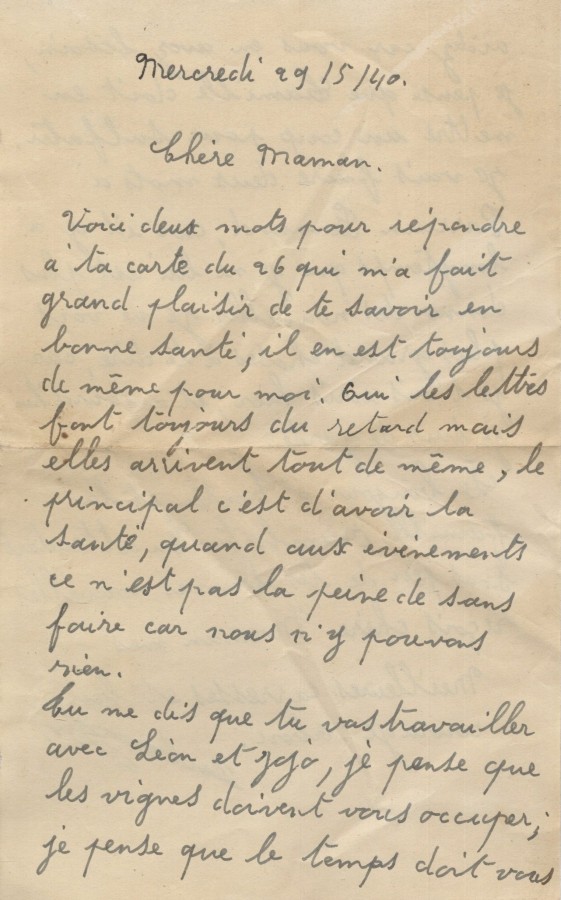 Mercredi 29/5/40.
Chère Maman.
Voici deux mots pour répondre
à ta carte du 26 qui m'a fait
grand plaisir de te savoir en
bonne santé, il en est toujours
de même pour moi. Oui les lettres
font toujours du retard mais
elles arrivent tout de même, le
principal c'est d'avoir la
santé, quand aux évènements
ce n'est pas la peine de sans
faire car nous n'y pouvons
rien.
Tu me dis que tu vas travailler
avec Léon et Jojo, je pense que
les vignes doivent vous occuper;
je pense que le temps doit vous